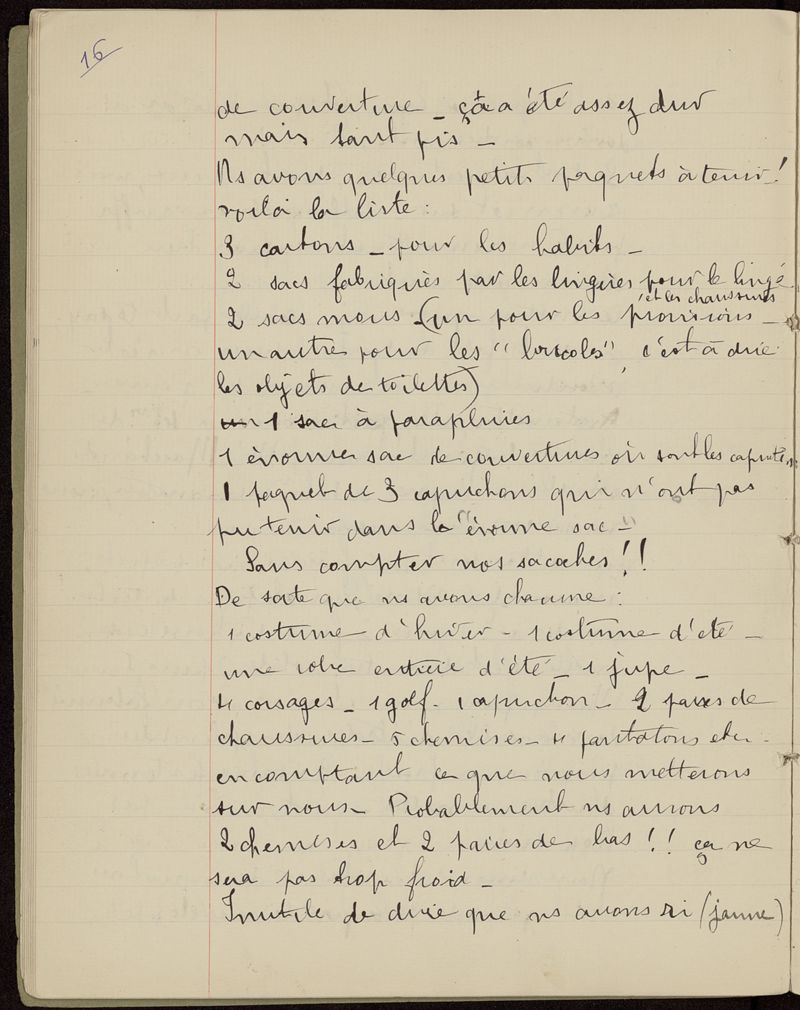 16
de couverture _ ça a été assez dur
mais tant pis _
Ns avons quelques petits paquets à tenir !
voilà la liste :
3 cartons _ pour les habits _
2 sacs fabriqués par les lingères pour le linge
et les chaussures
2 sacs mous _ (un pour les provisions _
un autre pour les "bricoles", c'est à dire
les objets de toilettes)
1 sac à parapluies
1 énorme sac de couvertures où sont les capuch.
1 paquet de 3 capuchons qui n'ont pas
pu tenir dans le "énorme sac _"
Sans compter nos sacoches !!
De sorte que ns avons chacune :
1 costume d'hiver _ 1 costume d'été _
une robe entière d'été _ 1 jupe _
4 corsages _ 1 golf _ 1 capuchon _ 2 paires de
chaussures _ 5 chemises _ 4 pantalons etc _
en comptant ce que nous metterons
sur nous _ Probablement ns aurons
2 chemises et 2 paires de bas !! ça ne
sera pas trop froid _
Inutile de dire que ns avons ri (jaune)